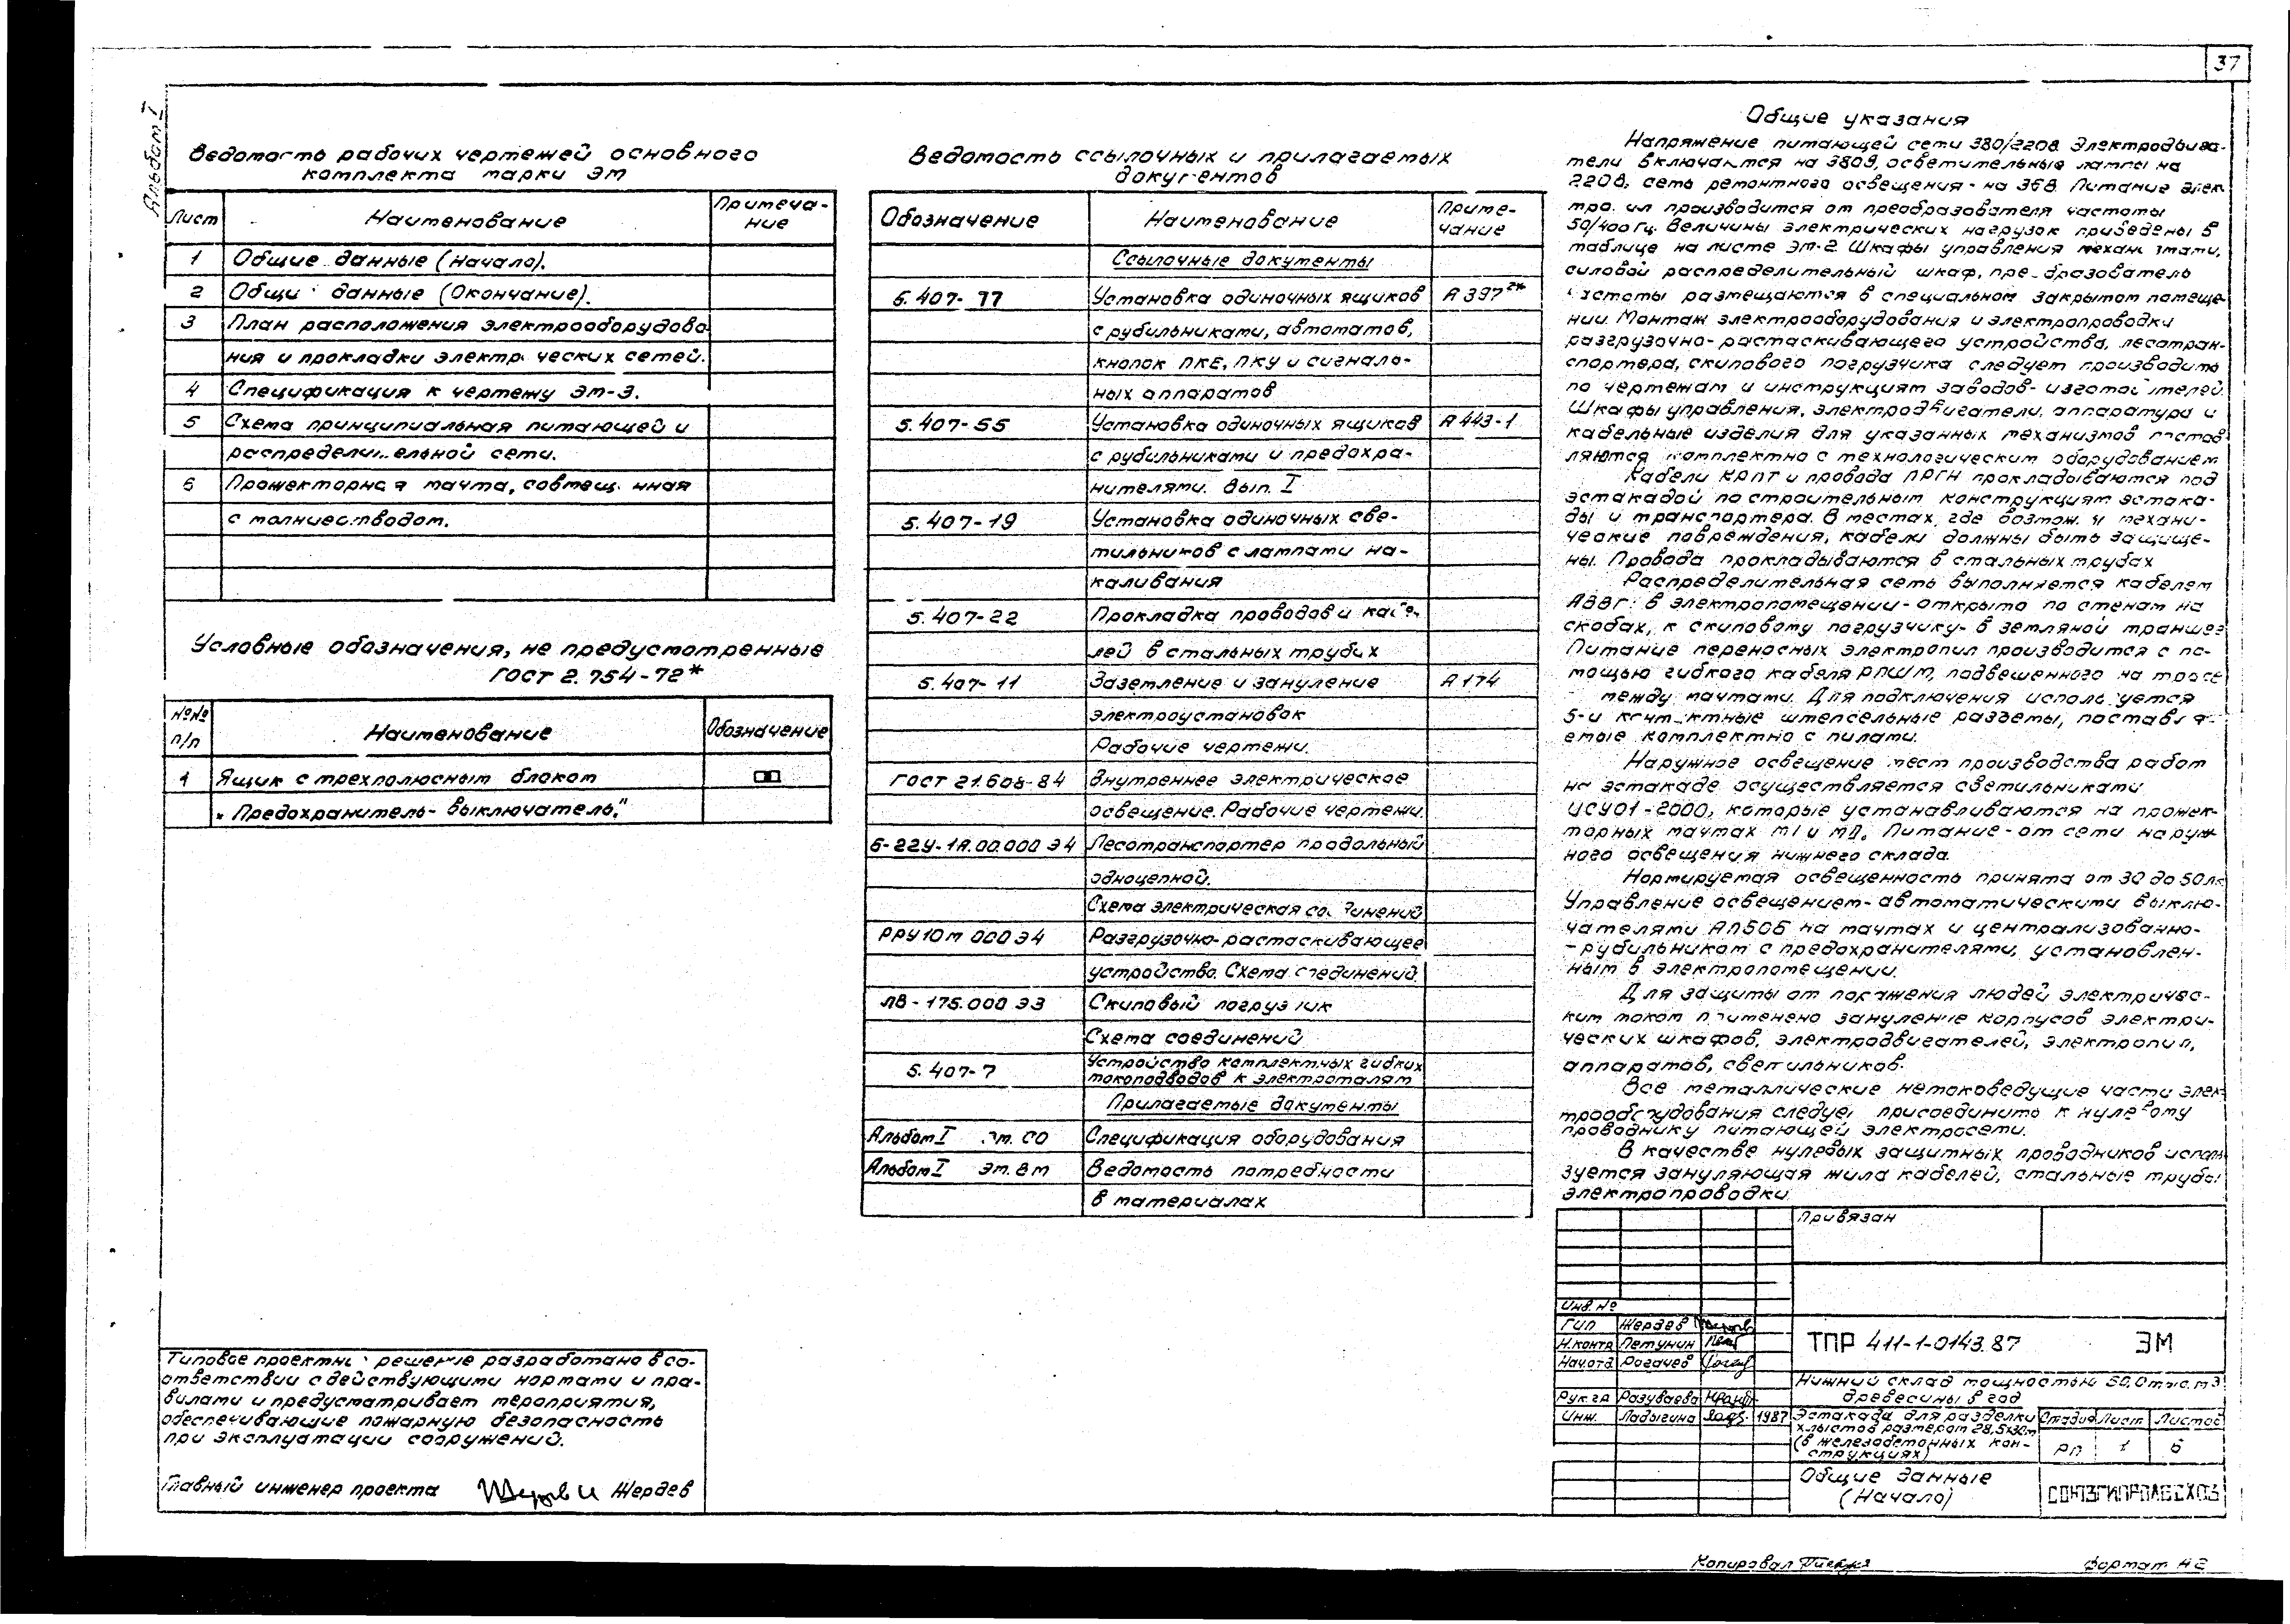 37
Альбом I
Ведомость рабочих чертежей основного
комплекта марки ЭМ
Лист Наименование Примеча-
ние
1 Общие данные (Начало).
2 Общи данные (Окончание).
3 План расположения электрооборудова
ния и прокладки электр ческих сетей.
4 Спецификация к чертежу ЭМ-3.
5 Схема принципиальная питающей и
распредели ельной сети.
6 Прожекторная мачта, совмещ нная
с молниеотводом.
Условные обозначения, не предусмотренные
ГОСТ 2.754-72*
№№
п/п Наименование Обозначение
1 Ящик с трехполюсным блоком
„Предохранитель-выключатель"
Типовое проектн решение разработано в со-
ответствии с действующими нормами и пра-
вилами и предусматривает мероприятия,
обеспечивающие пожарную безопасность
при эксплуатации сооружений.
Главный инженер проекта Жердев
Ведомость ссылочных и прилагаемых
документов
Обозначение Наименование Приме-
чание
Ссылочные документы
5.407-77 Установка одиночных ящиков А397
с рубильниками, автоматов,
кнопок ПКЕ, ПКУ и сигналь-
ных аппаратов
5.407-55 Установка одиночных ящиков А443-1
с рубильниками и предохра-
нителями. Вып. I
5.407-19 Установка одиночных све-
тильников с лампами на-
каливания
5.407-22 Прокладка проводов и кабе-
лей в стальных трубах
5.407-11 Заземление и зануление А174
электроустановок
Рабочие чертежи.
ГОСТ 21.608-84 Внутреннее электрическое
освещение. Рабочие чертежи.
Б-22У-1А.00.000 Э4 Лесотранспортер продольный
одноцепной.
Схема электрическая соединений
РРУ10м 000Э4 Разгрузочно-растаскивающее
устройство. Схема соединений.
ЛВ-175.000 ЭЗ Скиповый погрузчик
Схема соединений
5.407-7 Устройство комплектных гибких
токоподводов к электроталям
Прилагаемые документы
Альбом I Эм. СО Спецификация оборудования
Альбом I Эм. ВМ Ведомость потребности
в материалах
Общие указания
Напряжение питающей сети 380/220В. Электродвига-
тели включаются на 380В, осветительные лампы на
220В, сеть ремонтного освещения - на 36В. Питание элек
тропил производится от преобразователя частоты
50/400 Гц. Величины электрических нагрузок приведены в
таблице на листе ЭМ-2. Шкафы управления механизмами,
силовой распределительный шкаф, преобразователь
частоты размещаются в специальном закрытом помеще-
нии. Монтаж электрооборудования и электропроводки
разгрузочно-растаскивающего устройства, лесотран-
спортера, скипового погрузчика следует производить
по чертежам и инструкциям заводов-изготовителей.
Шкафы управления, электродвигатели, аппаратура и
кабельные изделия для указанных механизмов постав
ляются комплектно с технологическим оборудованием
Кабели КРПТ и провода ПРГН прокладываются под
эстакадой по строительным конструкциям эстака-
ды и транспортера. В местах, где возмож. ы механи-
ческие повреждения, кабели должны быть защище-
ны. Провода прокладываются в стальных трубах
Распределительная сеть выполняется кабелем
АВВГ: в электропомещении - открыто по стенам на
скобах, к скиповому погрузчику - в земляной траншее
Питание переносных электропил производится с по-
мощью гибкого кабеля РПШМ, подвешенного на тросе
между мачтами. Для подключения используется
5-и контактные штепсельные разъемы, поставля-
емые комплектно с пилами.
Наружное освещение мест производства работ
на эстакаде осуществляется светильниками
ИСУ01-2000, которые устанавливаются на прожек-
торных мачтах М1 и МД. Питание - от сети наруж
ного освещения нижнего склада.
Нормируемая освещенность принята от 30 до 50лк
Управление освещением - автоматическими выклю-
чателями АП50Б на мачтах и централизованно-
- рубильником с предохранителями, установлен-
ным в электропомещении.
Для защиты от поражения людей электричес-
ким током применено зануление корпусов электри-
ческих шкафов, электродвигателей, электропил,
аппаратов, светильников.
Все металлические нетоковедущие части элек
трооборудования следует присоединить к нулевому
проводнику питающей электросети.
В качестве нулевых защитных проводников исполь
зуется зануляющая жила кабелей, стальные трубы
электропроводки.
Привязан
Инв. №
ГИП Жердев
Н.контр Петунин
Нач.отд Рогачев
Рук.гр Разуваева
Инж. Ладыгина 1987
ТПР 411-1-0143.87 ЭМ
Нижний склад мощностью 50,0 тыс. м3
древесины в год
Эстакада для разделки
хлыстов размером 28,5х32м
(в железобетонных кон-
струкциях)
Стадия Лист Листов
РП 1 6
Общие данные
(Начало)
СОЮЗГИПРОЛЕСХОЗ
Копировал
Формат А2